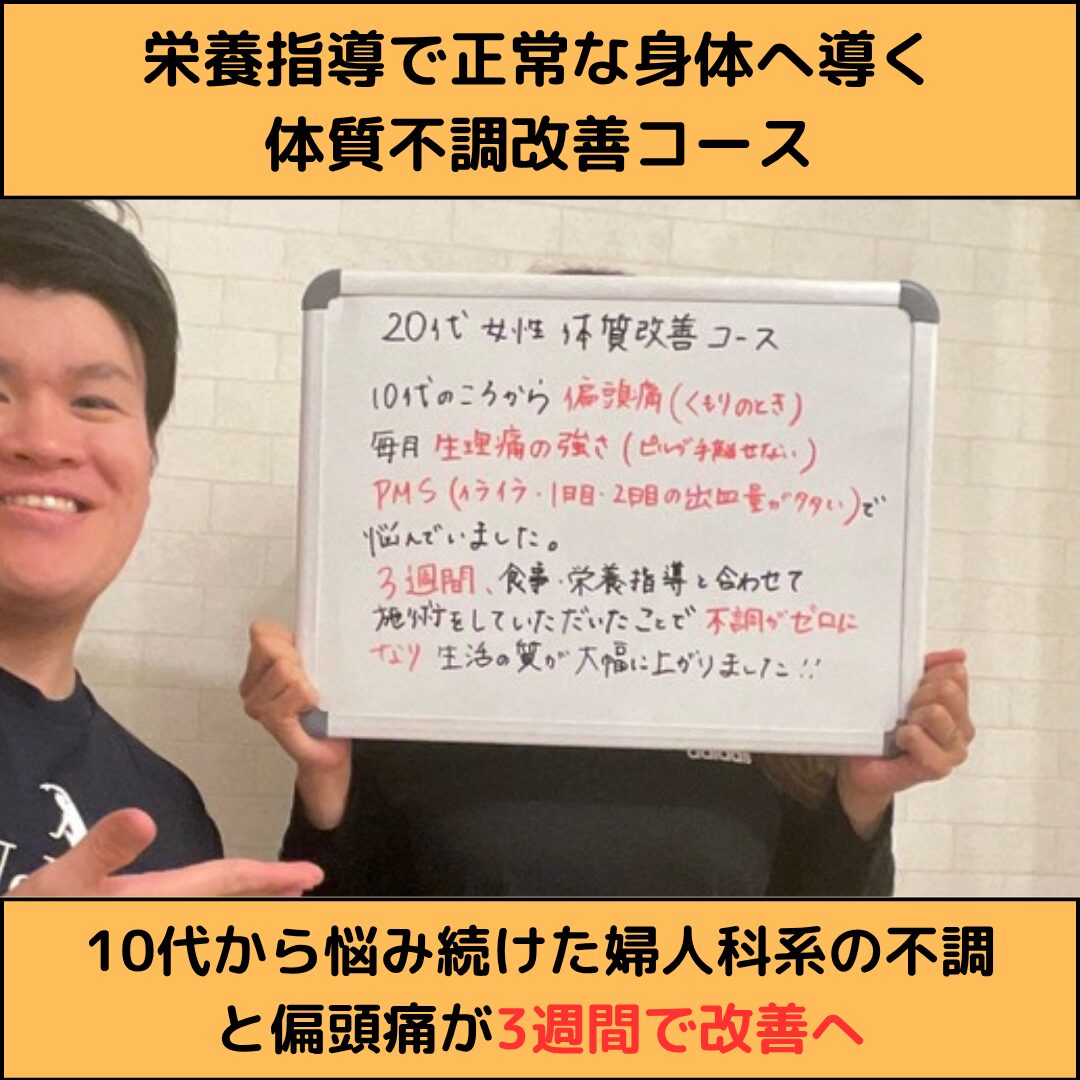 栄養指導で正常な身体へ導く
体質不調改善コース
20代 女性 体質改善コース
10代のころから 偏頭痛(くもりのとき)
毎月 生理痛の強さ (ピルが手離せない)
PMS (イライラ・1日目・2日目の出血量が多い)で
悩んでいました。
3週間、食事・栄養指導と合わせて
施術をしていただいたことで 不調がゼロに
なり 生活の質が大幅に上がりました!!
adidas
10代から悩み続けた婦人科系の不調
と偏頭痛が3週間で改善へ